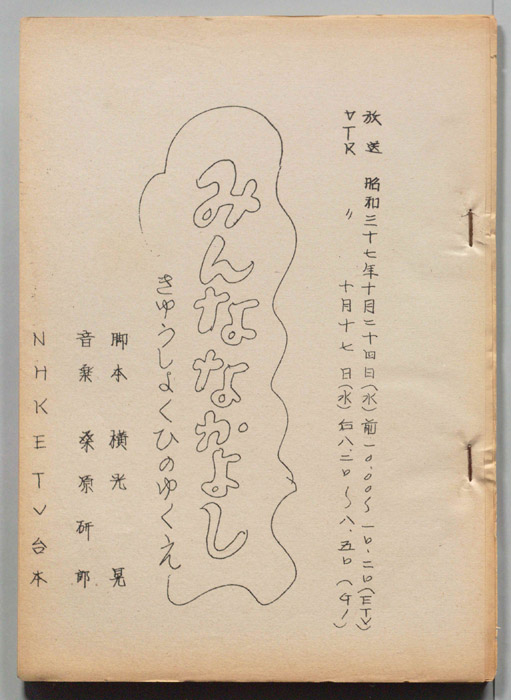 放送 昭和三十七年十月二十四日(水)前一〇.〇〇〜一〇.二〇(ETV)
VTR 〃 十月十七日(水)后八.二〇〜八.五〇
みんななかよし
きゅうしょくひのゆくえ
脚本 横光 晃
音楽 桑原研郎
NHKETV台本